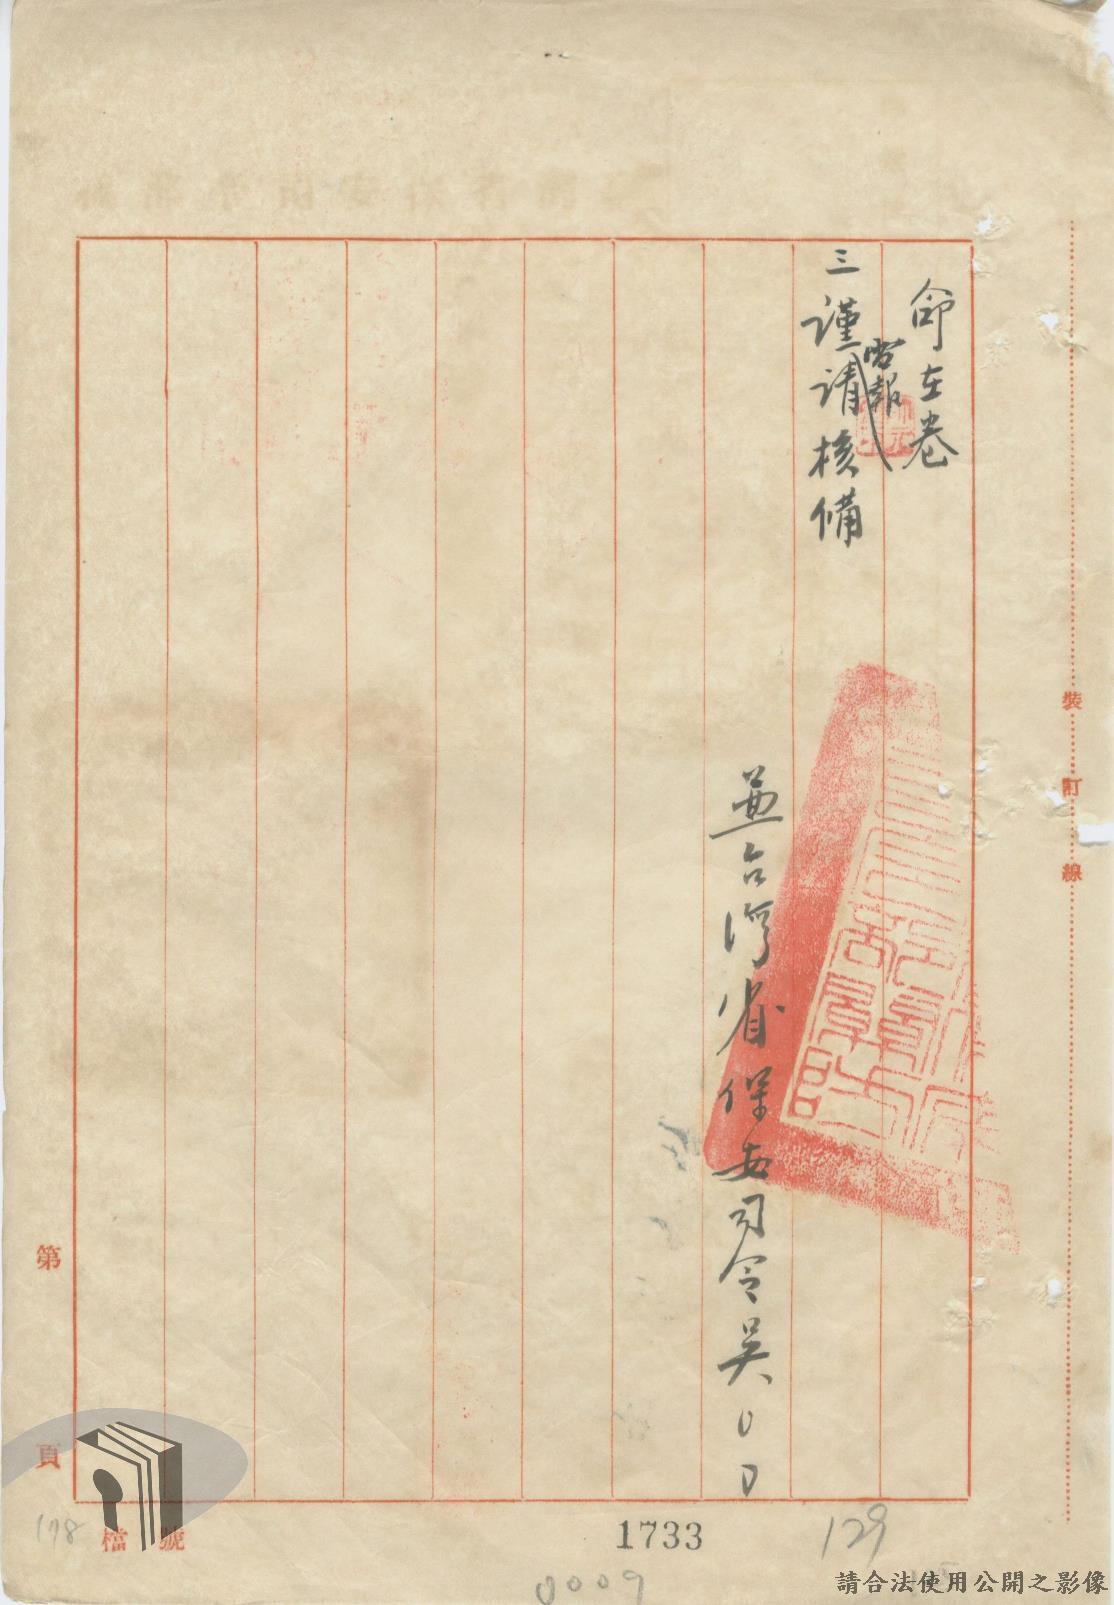 命在卷
三謹請核備
密報
兼台灣省保安司令吳
裝訂線
第頁
檔號
178
1733
129
0009
請合法使用公開之影像